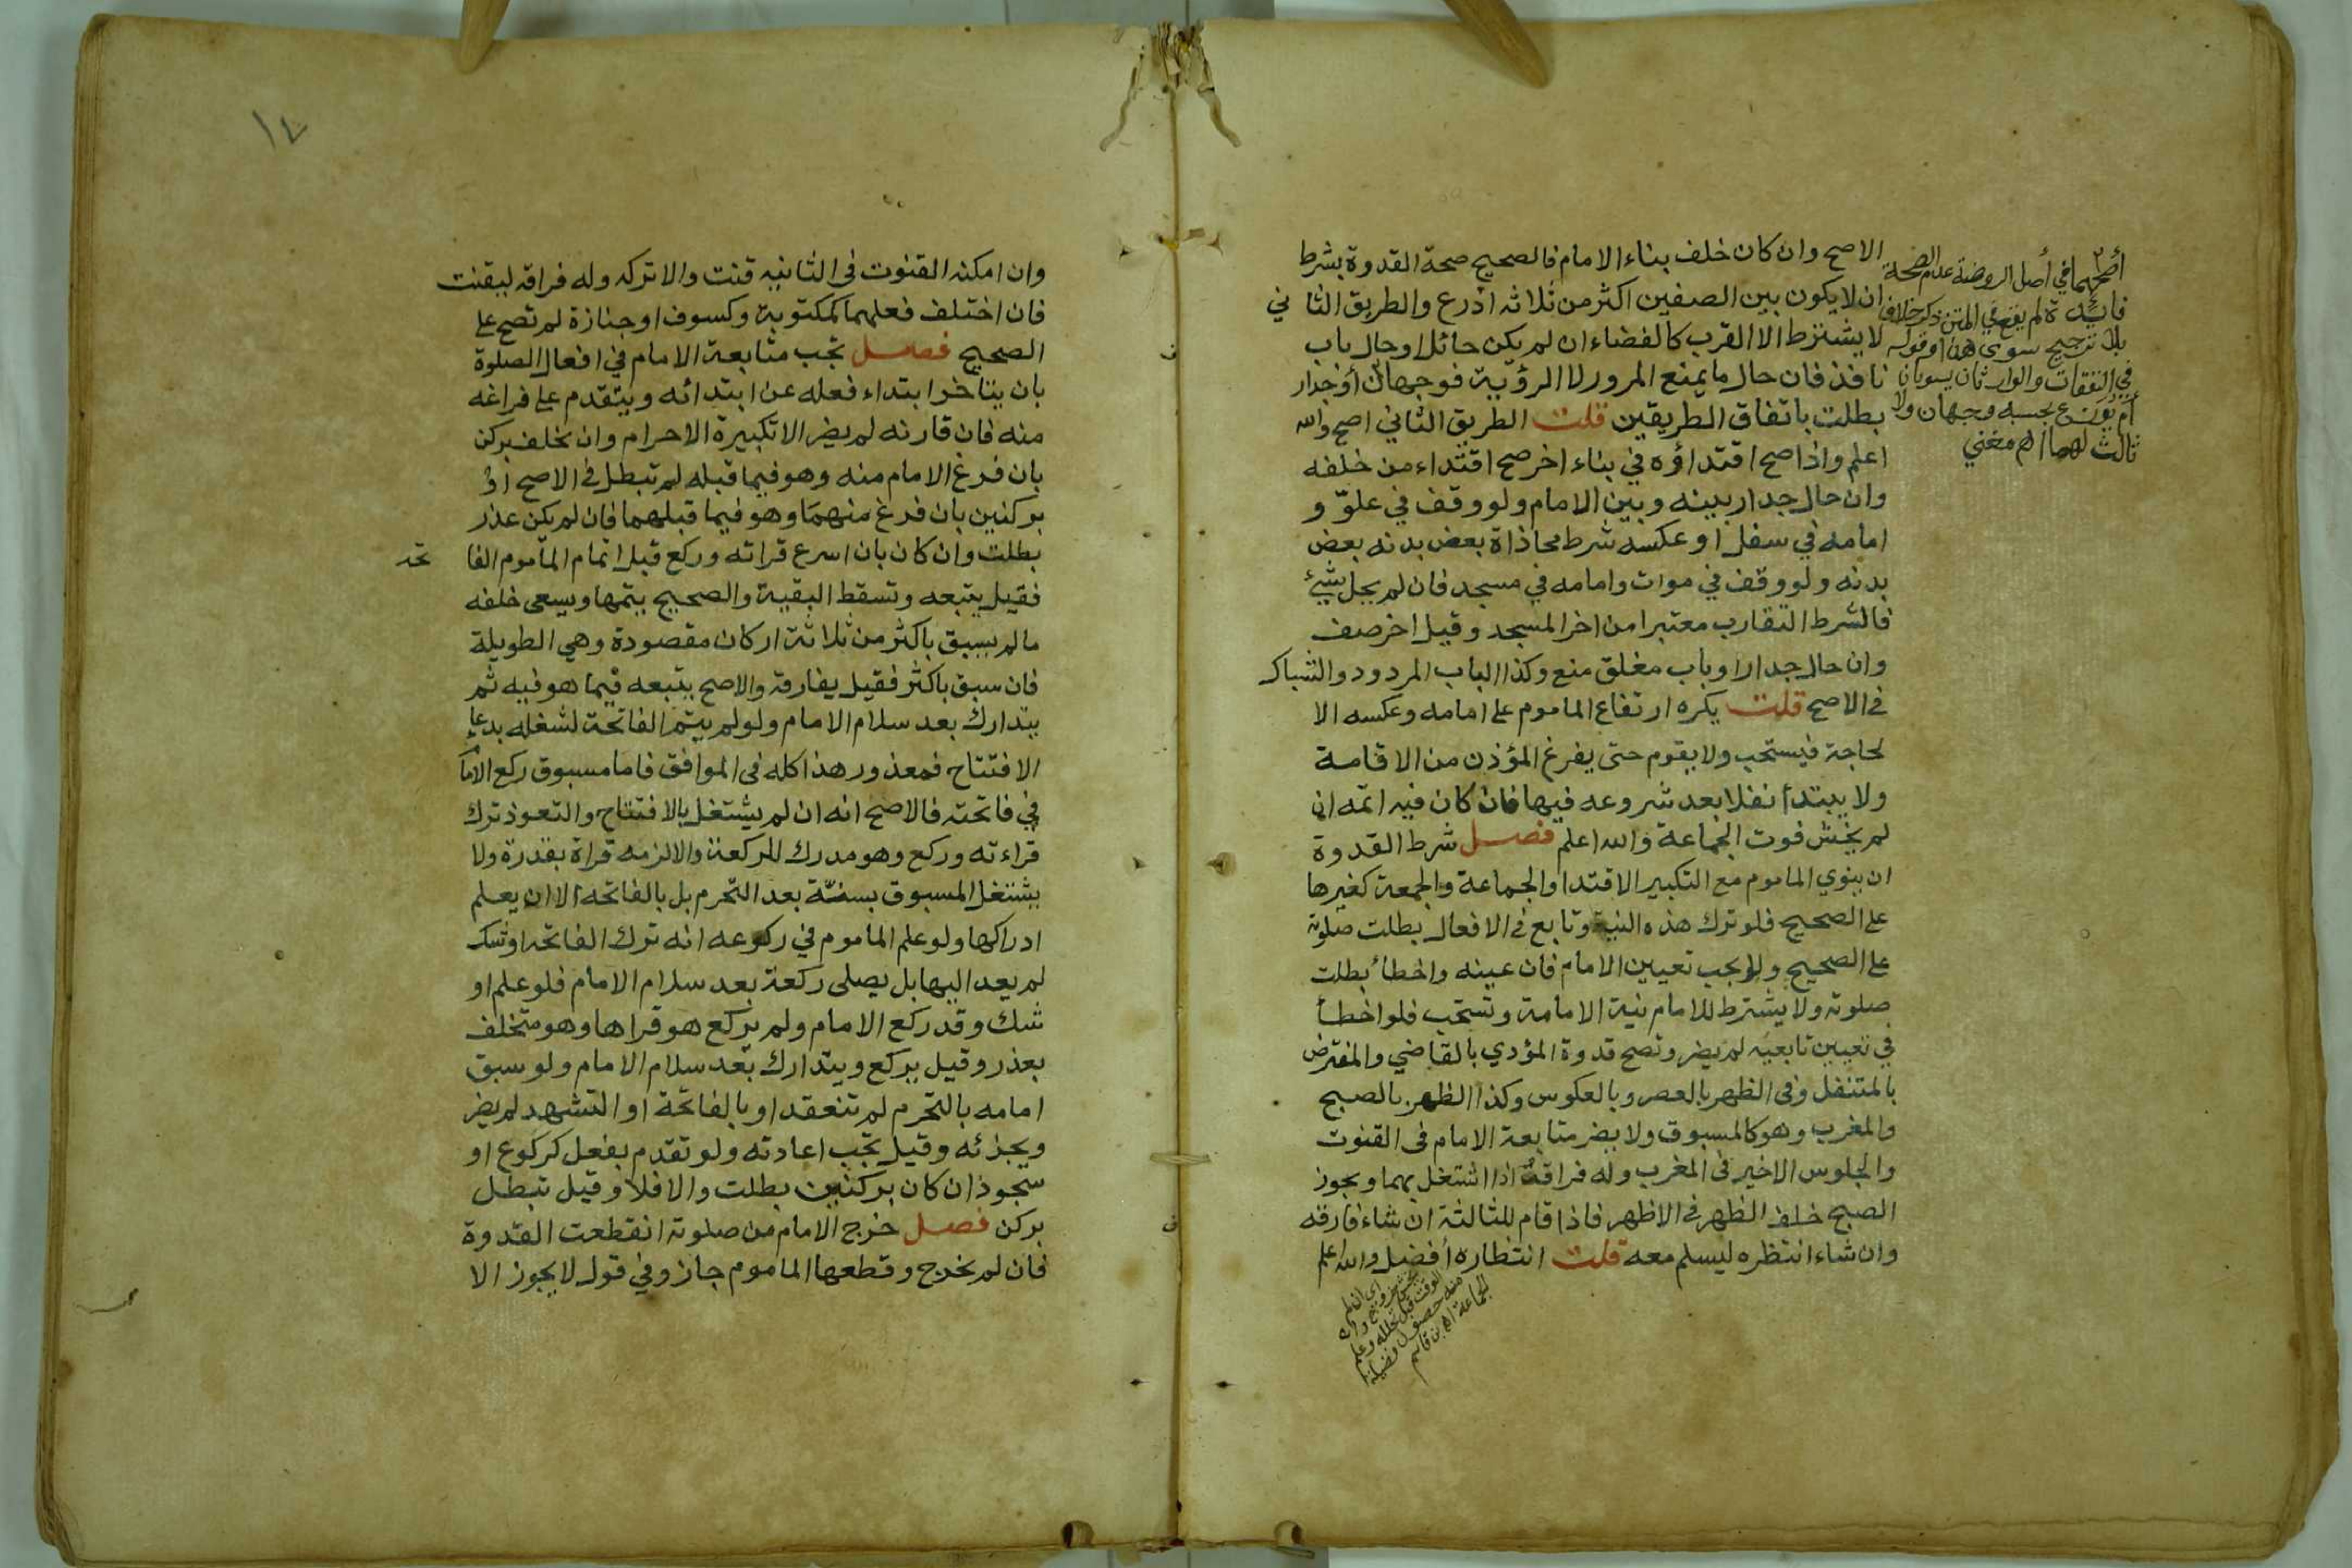 الاصح وان كان خلف بناء الامام فالصحيح صحة القدوة بشرط
ان لا يكون بين الصفين اكثر من ثلاثه اذرع والطريق الثا ني
لا يشترط الا القرب كالفضاء ان لم يكن حائل او حال باب
نافذ فان حال ما يمنع المرور لا الرؤية فوجهان أو جدار
بطلت باتفاق الطريقين قلت الطريق الثاني اصح والله
اعلم واذا صح اقتداؤه في بناء اخر صح اقتداء من خلفه
وان حال جدار بينه وبين الامام ولو وقف في علوّ و
امامه في سفل او عكسه شرط محاذاة بعض بدنه بعض
بدنه ولو وقف في موات وامامه في مسجد فان لم يحل شئ
فالشرط التقارب معتبرا من اخر المسجد وقيل اخر صف
وان حال جدار او باب مغلق منع وكذا الباب المردود والشباك
في الاصح قلت يكره ارتفاع الماموم على امامه وعكسه الا
لحاجة فيستحب ولا يقوم حتى يفرغ المؤذن من الاقامة
ولا يبتدأ نفلا بعد شروعه فيها فان كان فيه اتمه ان
لم يخش فوت الجماعة والله اعلم فصل شرط القدوة
ان ينوي الماموم مع التكبير الاقتدا والجماعة والجمعة كغيرها
على الصحيح فلو ترك هذه النية وتابع في الافعال بطلت صلوته
على الصحيح ولا يجب تعيين الامام فان عينه واخطأ بطلت
صلوته ولا يشترط للامام نية الامامة وتستحب فلو اخطأ
في تعيين تابعيه لم يضر وتصح قدوة المؤدي بالقاضي والمفترض
بالمتنفل وفي الظهر بالعصر وبالعكوس وكذا الظهر بالصبح
والمغرب وهو كالمسبوق ولا يضر متابعة الامام في القنوت
والجلوس الاخير في المغرب وله فراقه اذا اشتغل بهما ويجوز
الصبح خلف الظهر في الاظهر فاذا قام للثالثة ان شاء فارقه
وان شاء انتظره ليسلم معه قلت انتظاره أفضل والله اعلم
أصحهما في أصل الروضة عدم الصحة
فائدة لم يقع في المتن ذكر خلاف
بلا ترجيح سوى هذا وقوله
في النفقات والوارثان يستويان
أم توزع بحسبه وجهان ولا
ثالث لهما اهـ مغني
منه حصول فضيلة
الجماعة اهـ بن قاسم
١٤
وان امكنه القنوت في الثانيه قنت والا تركه وله فراقه ليقنت
فان اختلف فعلهما كمكتوبة وكسوف او جنازة لم تصح على
الصحيح فصل تجب متابعة الامام في افعال الصلوة
بان يتاخر ابتداء فعله عن ابتدائه ويتقدم على فراغه
منه فان قارنه لم يضر الا تكبيرة الاحرام وان تخلف بركن
بان فرغ الامام منه وهو فيما قبله لم تبطل في الاصح او
بركنين بان فرغ منهما وهو فيما قبلهما فان لم يكن عذر
بطلت وان كان بان اسرع قراته وركع قبل اتمام المأموم الفا تحه
فقيل يتبعه وتسقط البقية والصحيح يتمها ويسعى خلفه
ما لم يسبق باكثر من ثلاثة اركان مقصودة وهي الطويلة
فان سبق باكثر فقيل يفارقه والاصح يتبعه فيما هو فيه ثم
يتدارك بعد سلام الامام ولو لم يتم الفاتحة لشغله بدعاء
الافتتاح فمعذور هذا كله في الموافق فاما مسبوق ركع الامام
في فاتحته فالاصح انه ان لم يشتغل بالافتتاح والتعوذ ترك
قراءته وركع وهو مدرك للركعة والا لزمه قراة بقدرة ولا
يشتغل المسبوق بسنة بعد التحرم بل بالفاتحه الا ان يعلم
ادراكها ولو علم الماموم في ركوعه انه ترك الفاتحه او شك
لم يعد اليها بل يصلى ركعة بعد سلام الامام فلو علم او
شك وقد ركع الامام ولم يركع هو قراها وهو متخلف
بعذر وقيل يركع ويتدارك بعد سلام الامام ولو سبق
امامه بالتحرم لم تنعقد او بالفاتحة او التشهد لم يضر
ويجزئه وقيل تجب اعادته ولو تقدم بفعل كركوع او
سجود ان كان بركنين بطلت والا فلا وقيل تبطل
بركن فصل خرج الامام من صلوته انقطعت القدوة
فان لم يخرج وقطعها الماموم جاز وفي قول لا يجوز الا